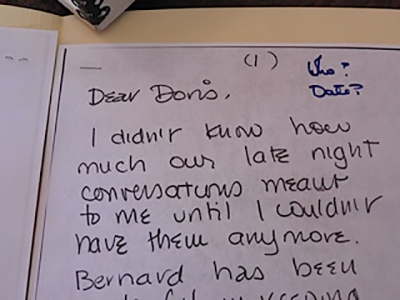 (1)
Who?
Date?
Dear Doris,
I didn't know how
much our late night
conversations meant
to me until I couldn't
have them anymore.
Bernard has been